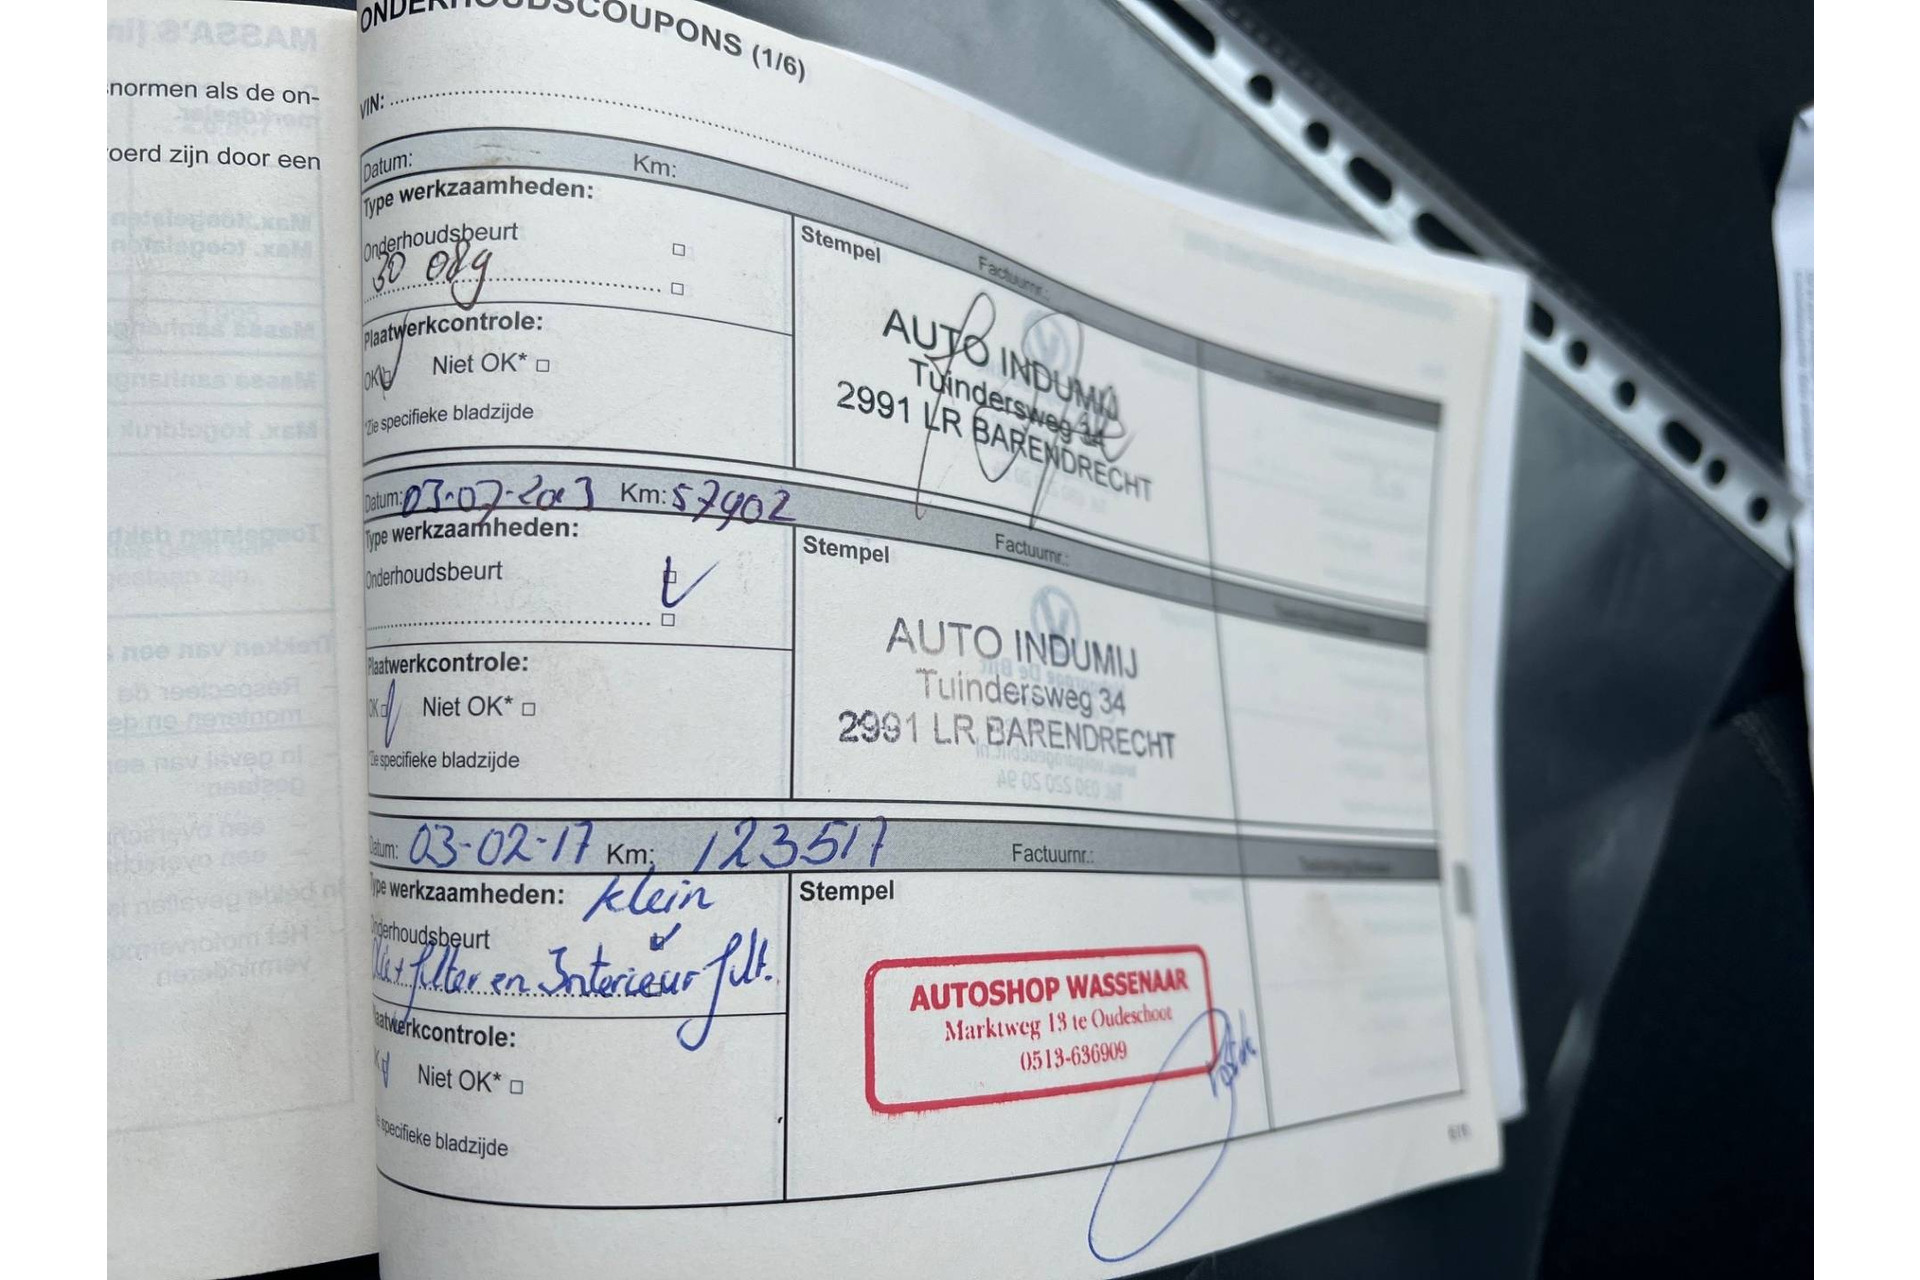 normen als de on-
oerd zijn door een
ONDERHOUDSCOUPONS (1/6)
VIN:
Datum: Km:
Type werkzaamheden:
Onderhoudsbeurt
30 089
Plaatwerkcontrole:
OK Niet OK*
*Zie specifieke bladzijde
Stempel
Factuurnr.:
AUTO INDUMIJ
Tuindersweg 34
2991 LR BARENDRECHT
Datum: 03-07-2013 Km: 57902
Type werkzaamheden:
Onderhoudsbeurt
Plaatwerkcontrole:
OK Niet OK*
*Zie specifieke bladzijde
Stempel
Factuurnr.:
AUTO INDUMIJ
Tuindersweg 34
2991 LR BARENDRECHT
Datum: 03-02-17 Km: 123517
Factuurnr.:
Type werkzaamheden: klein
Onderhoudsbeurt
filter en Interieur filt.
Plaatwerkcontrole:
Niet OK*
specifieke bladzijde
Stempel
AUTOSHOP WASSENAAR
Marktweg 13 te Oudeschoot
0513-636909